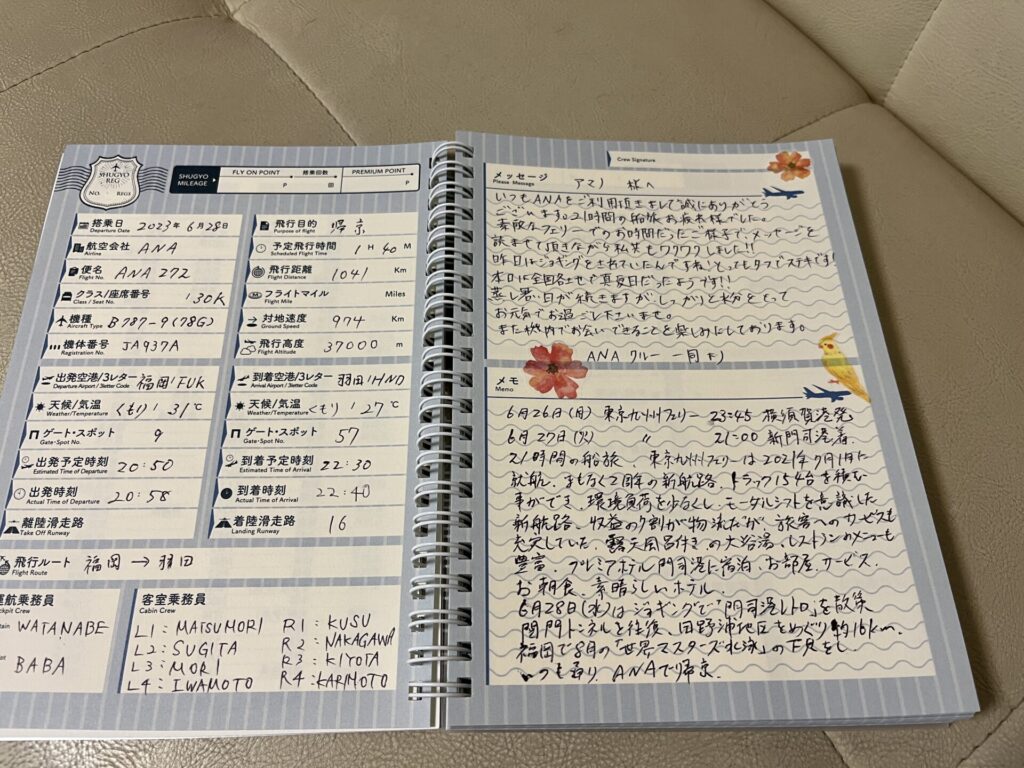 SHUGYO
REG
No. REGS
SHUGYO
MILEAGE
FLY ON POINT
P
搭乗回数
回
PREMIUM POINT
P
搭乗日 2023年6月28日
Departure Date
航空会社 ANA
Airline
便名 ANA 272
Flight No.
クラス/座席番号 / 30K
Class / Seat No.
機種 B787-9 (78G)
Aircraft Type
機体番号 JA937A
Registration No.
飛行目的 帰京
Purpose of flight
予定飛行時間 1 H 40 M
Scheduled Flight Time
飛行距離 1041 Km
Flight Distance
フライトマイル Miles
Flight Mile
対地速度 974 Km
Ground Speed
飛行高度 37000 m
Flight Altitude
出発空港/3レター 福岡/FUK
Departure Airport / 3letter Code
天候/気温 くもり/31℃
Weather/Temperature
ゲート・スポット 9
Gate・Spot No.
出発予定時刻 20:50
Estimated Time of Departure
出発時刻 20:58
Actual Time of Departure
離陸滑走路
Take Off Runway
到着空港/3レター 羽田/HND
Arrival Airport / 3letter Code
天候/気温 くもり/27℃
Weather/Temperature
ゲート・スポット 57
Gate・Spot No.
到着予定時刻 22:30
Estimated Time of Arrival
到着時刻 22:40
Actual Time of Arrival
着陸滑走路 16
Landing Runway
飛行ルート 福岡 → 羽田
Flight Route
運航乗務員
Cockpit Crew
WATANABE
BABA
客室乗務員
Cabin Crew
L1: MATSUMORI R1: KUSU
L2: SUGITA R2: NAKAGAWA
L3: MORI R3: KIYOTA
L4: IWAMOTO R4: KARIMOTO
Crew Signature
メッセージ アマノ 様へ
Please Message
いつもANAをご利用頂きまして誠にありがとう
ございます。21時間の船旅お疲れ様でした。
素敵なフェリーでのお時間だったご様子で、メッセージを
読ませて頂きながら私共もワクワクしました!!
昨日はジョギングをされていたんですね。とってもタフでステキです!
本日は全国各地で真夏日だったようです!!
蒸し暑い日が続きますが、しっかりと水分をとって
お元気でお過ごし下さいませ。
また機内でお会いできることを楽しみにしております。
ANA クルー 一同より
メモ
Memo
6月26日(月) 東京九州フェリー 23:45 横須賀港発
6月27日(火) 〃 21:00 新門司港着
21時間の船旅、東京九州フェリーは2021年7月1日に
就航、まもなく2周年の新航路、トラック154台を積む
事ができ、環境負荷をゆるくし、モーダルシフトを意識した
新航路、収益の9割が物流だが、旅客へのサービスも
充実していた、露天風呂付きの大浴場、レストランのメニューも
豊富、プレミアホテル門司港に宿泊、お部屋、サービス、
お朝食、素晴らしいホテル。
6月28日(水)はジョギングで「門司港レトロ」を散策
関門トンネルを往復、田野浦地区をめぐり約16km。
福岡で8月の「世界マスターズ水泳」の下見をし、
いつも通り、ANAで帰京。